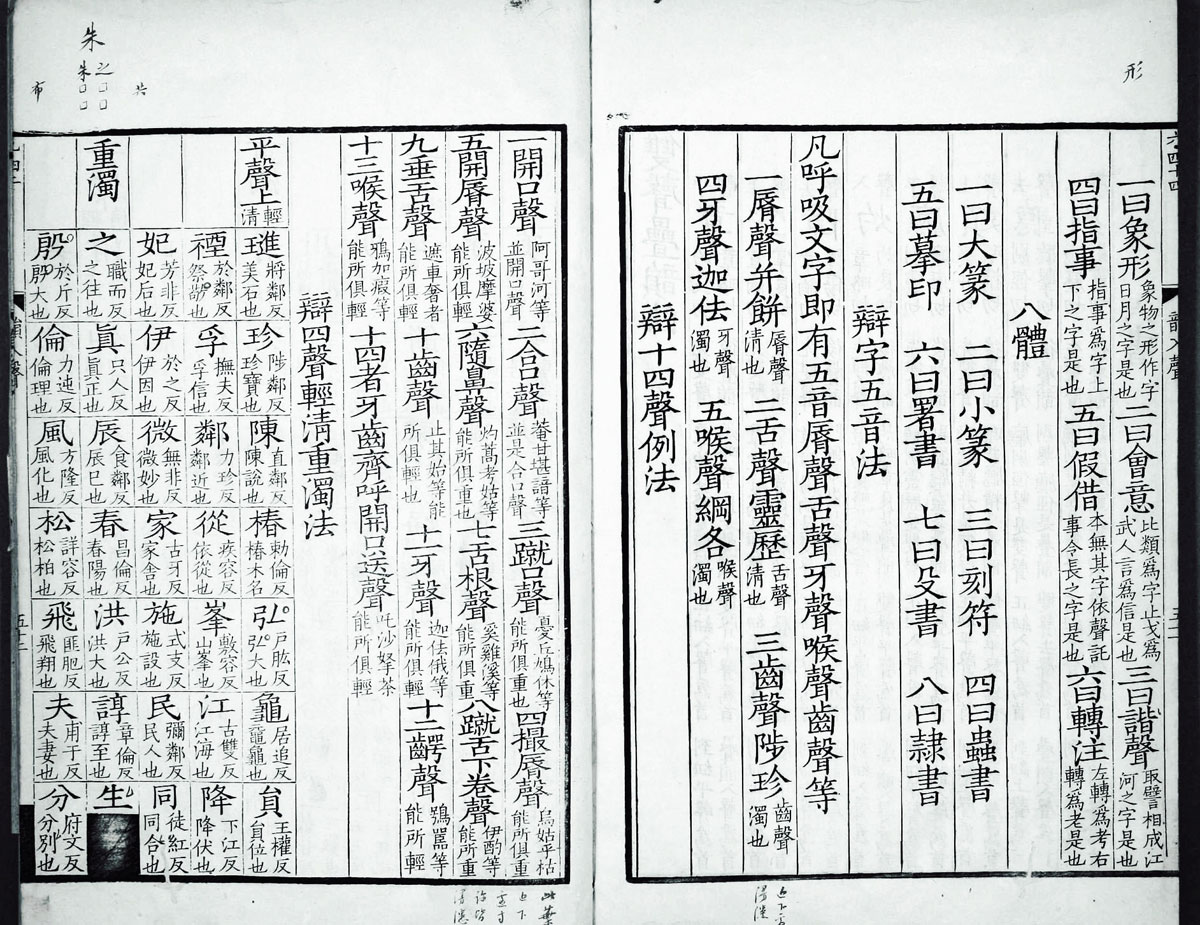 形
一曰象形象物之形作字日月之字是也二曰會意比類爲字止戈爲武人言爲信是也三曰諧聲取譬相成江河之字是也
四曰指事指事爲字上下之字是也五曰假借本無其字依聲託事令長之字是也六曰轉注左轉爲考右轉爲老是也
八體
一曰大篆 二曰小篆 三曰刻符 四曰蟲書
五曰摹印 六曰署書 七曰殳書 八曰隷書
辯字五音法
凡呼吸文字即有五音脣聲舌聲牙聲喉聲齒聲等
一脣聲并餅脣聲清也 二舌聲靈歷舌聲清也 三齒聲陟珍齒聲濁也
四牙聲迦佉牙聲濁也 五喉聲綱各喉聲濁也
辯十四聲例法
一開口聲阿哥河等並開口聲二合口聲菴甘堪諳等並是合口聲三蹴口聲憂丘鳩休等能所俱重也四撮脣聲烏姑乎枯能所俱重
五開脣聲波坡摩婆能所俱輕六隨鼻聲灼蒿考姑等能所俱重也七舌根聲奚雞溪等能所俱重八蹴舌下卷聲伊酌等能所重
九垂舌聲遮車奢者能所俱輕十齒聲止其始等能所俱輕也十一牙聲迦佉俄等能所俱輕十二齶聲鴞嚣等能所輕
十三喉聲鴉加瘕等能所俱輕十四者牙齒齊呼開口送聲吒沙拏茶能所俱輕
辯四聲輕清重濁法
平聲上輕清璡將鄰反美石也珍陟鄰反珍寶也陳直鄰反陳說也椿勅倫反椿木名弘戶肱反弘大也龜居追反黿龜也負王權反負位也
禋於鄰反祭孚撫夫反孚信也鄰力珍反鄰近也從疾容反依從也峯敷容反山峯也江古雙反江海也降下江反降伏也
妃芳非反妃后也伊於之反伊因也微無非反微妙也家古牙反家舍也施式支反施設也民彌鄰反民人也同徒紅反同合也
重濁之職而反之往也眞只人反眞正也辰食鄰反辰巳也春昌倫反春陽也洪戶公反洪大也諄章倫反諄至也生
殷於斤反殷大也倫力迍反倫理也風方隆反風化也松詳容反松柏也飛匪肥反飛翔也夫甫于反夫妻也分府文反分別也
朱